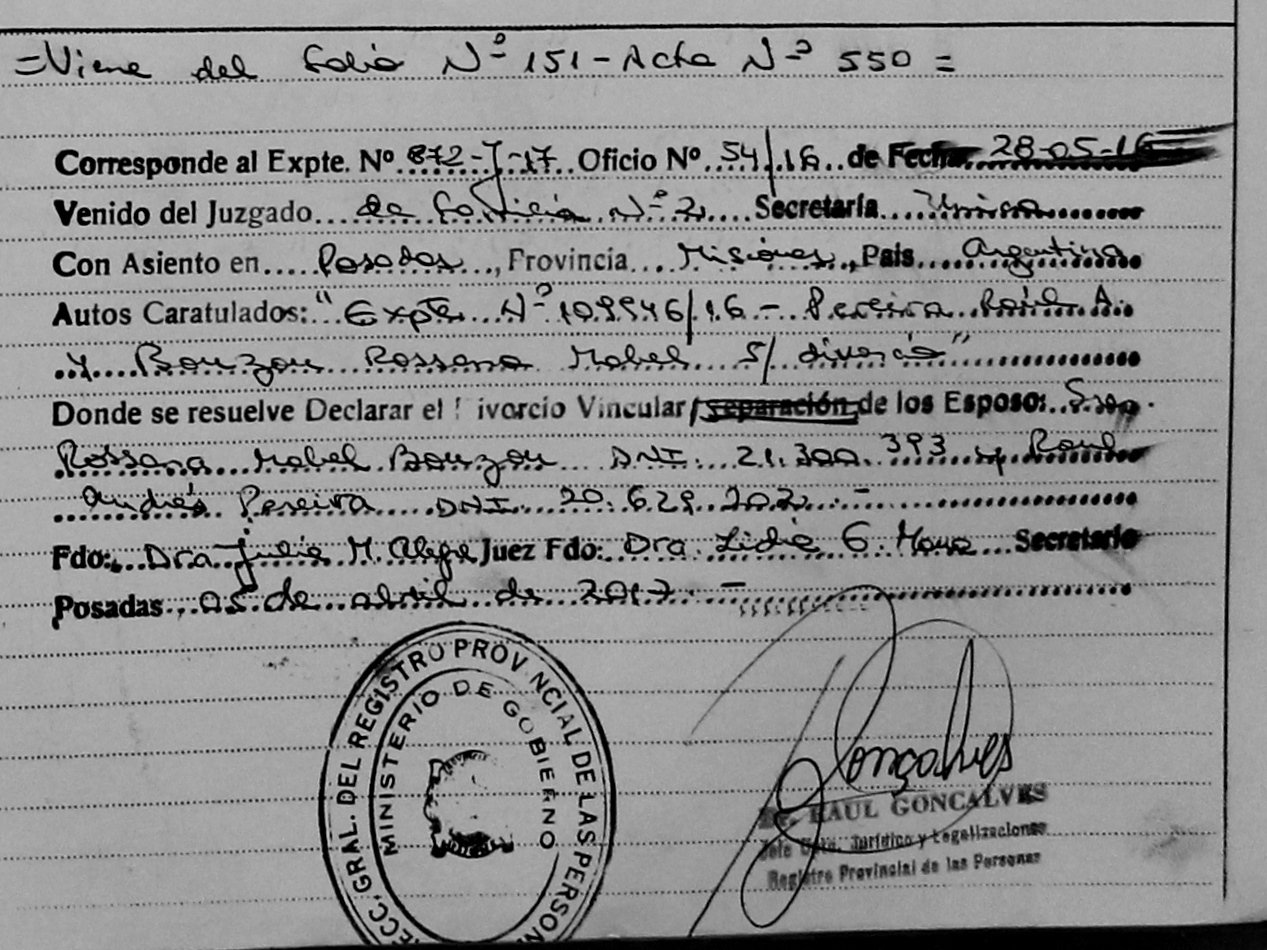 =Viene del Folio Nº 151 - Acta Nº 550 =
Corresponde al Expte. Nº 872-J-17 Oficio Nº 54/16 de Fecha 28-05-16
Venido del Juzgado de Familia Nº 2 Secretaría Única
Con Asiento en Posadas, Provincia Misiones, País Argentina
Autos Caratulados: "Expte Nº 109946/16 - Pereira Raúl A.
y Bouzon Rossana Mabel S/ divorcio"
Donde se resuelve Declarar el Divorcio Vincular/separación de los Esposo: Sres.
Rossana Mabel Bouzon DNI 21.300.393 y Raul
Andrés Pereira DNI 20.629.202.-
Fdo: Dra Julia M. Alegre Juez Fdo: Dra. Lidia G. Secretario
Posadas, 05 de abril de 2017.-
DIRECC. GRAL. DEL REGISTRO PROVINCIAL DE LAS PERSON
MINISTERIO DE GOBIERNO
Goncalves
Dr. RAUL GONCALVES
Jefe Jurídico y Legalizaciones
Registro Provincial de las Personas